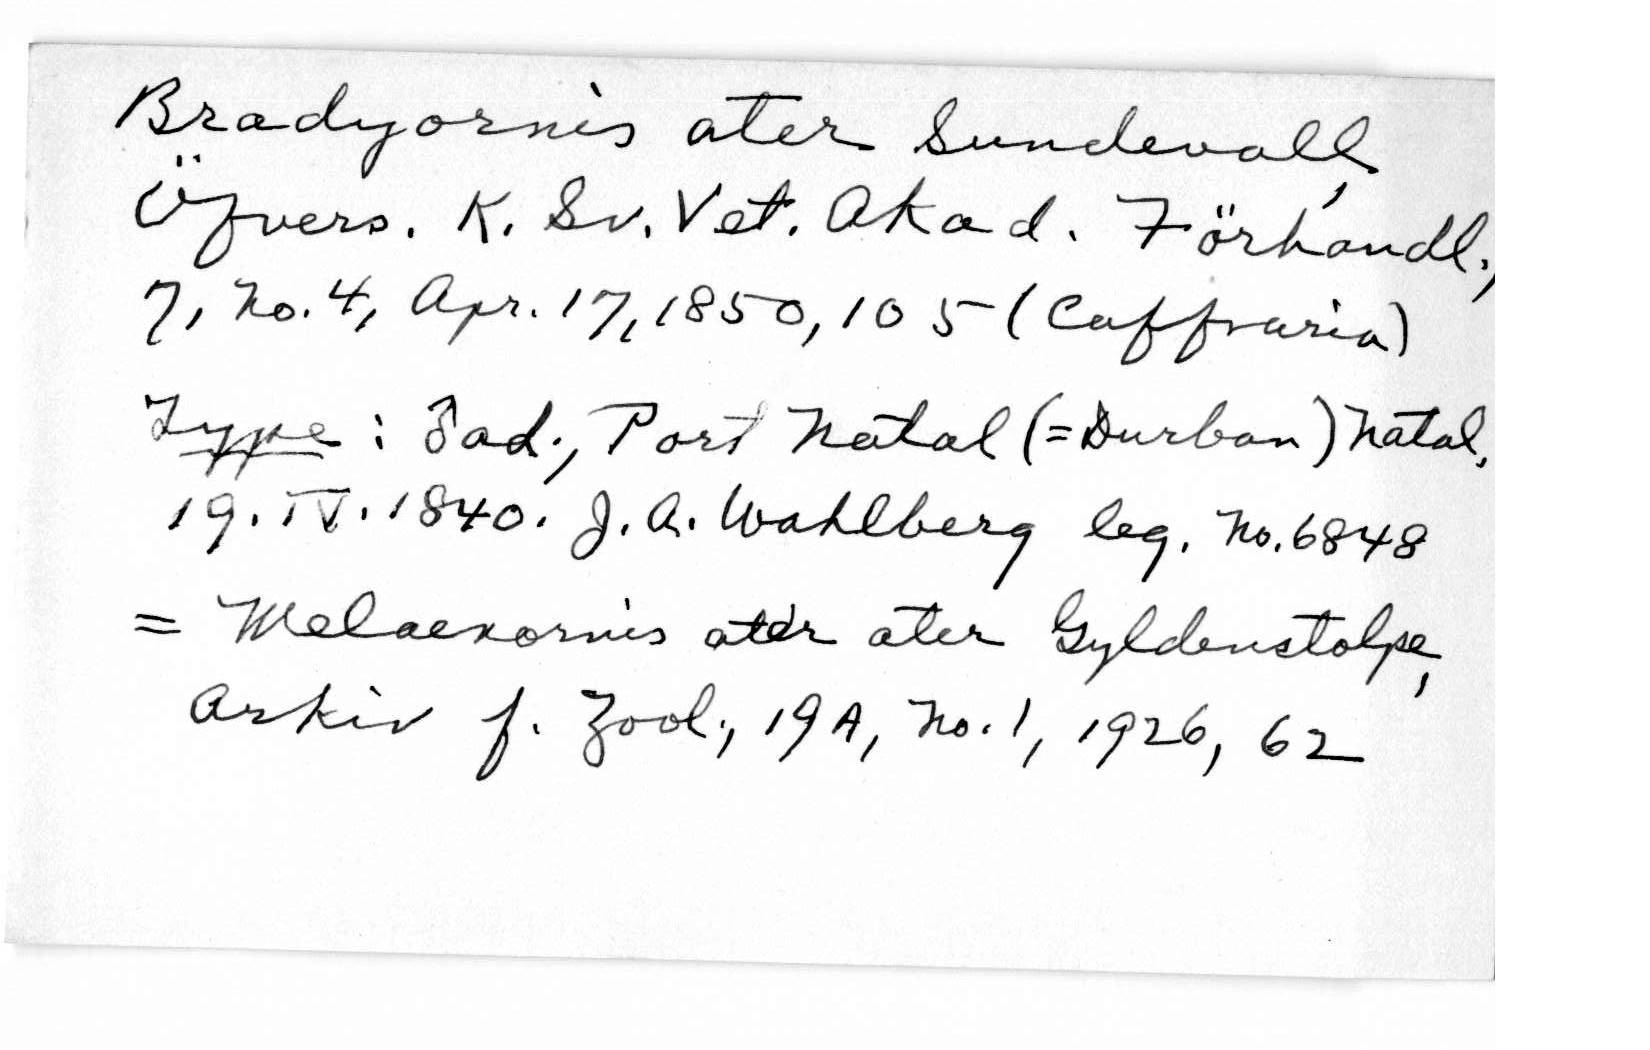 Bradyornis ater Sundevall,
Öfvers. K. Sv. Vet. Akad. Förhandl.,
7, no. 4, Apr. 17, 1850, 105 (Caffraria)
Type: ♂ ad., Port Natal (=Durban) Natal,
19. IV. 1840. J. A. Wahlberg leg. No. 6848
= Melaenornis ater ater Gyldenstolpe,
Arkiv f. Zool., 19A, no. 1, 1926, 62